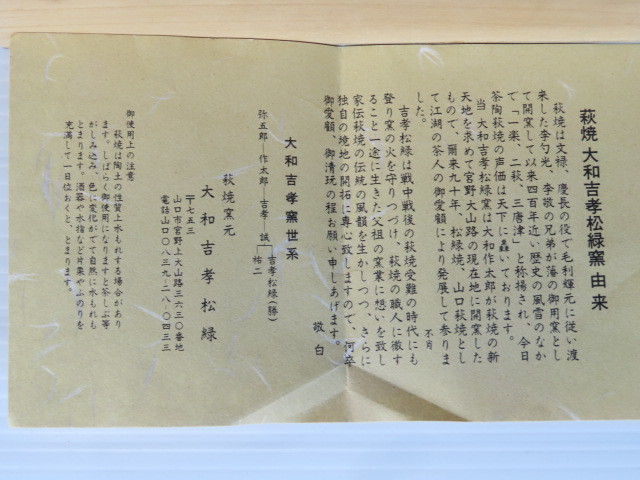 萩焼 大和吉孝松緑窯 由来
萩焼は文禄、慶長の役で毛利輝元に従い渡
来した李勺光、李敬の兄弟が藩の御用窯とし
て開窯して以来四百年近い歴史の風雪のなか
で「一楽、二萩、三唐津」と称揚され、今日
茶陶萩焼の声価は天下に轟いております。
当 大和吉孝松緑窯は大和作太郎が萩焼の新
天地を求めて宮野大山路の現在地に開窯した
もので、爾来九十年、松緑焼、山口萩焼とし
て江湖の茶人の御愛顧により発展して参りま
した。
吉孝松緑は戦中戦後の萩焼受難の時代にも
登り窯の火を守りつづけ、萩焼の職人に徹す
ること一途に生きた父祖の窯業に想いを致し
家伝萩焼の伝統の風韻を生かしつつ、さらに
独自の境地の開拓に専心致しますので、何卒
御愛顧、御清玩の程お願い申しあげます。
敬白
大和吉孝窯世系
弥五郎―作太郎―吉孝―誠
吉孝松緑(勝)
祐二
萩焼窯元
大和吉孝松緑
〒七五三
山口市宮野上大山路三六三〇番地
電話山口〇八三九‐二八‐〇四三三
御使用上の注意
萩焼は陶土の性質上水もれする場合があり
ます。しばらく御使用になりますと茶しぶ等
がしみ込み、色に変化がでて自然に水もれも
とまります。酒器や水指など片栗やふのりを
充満して一日位おくと、とまります。